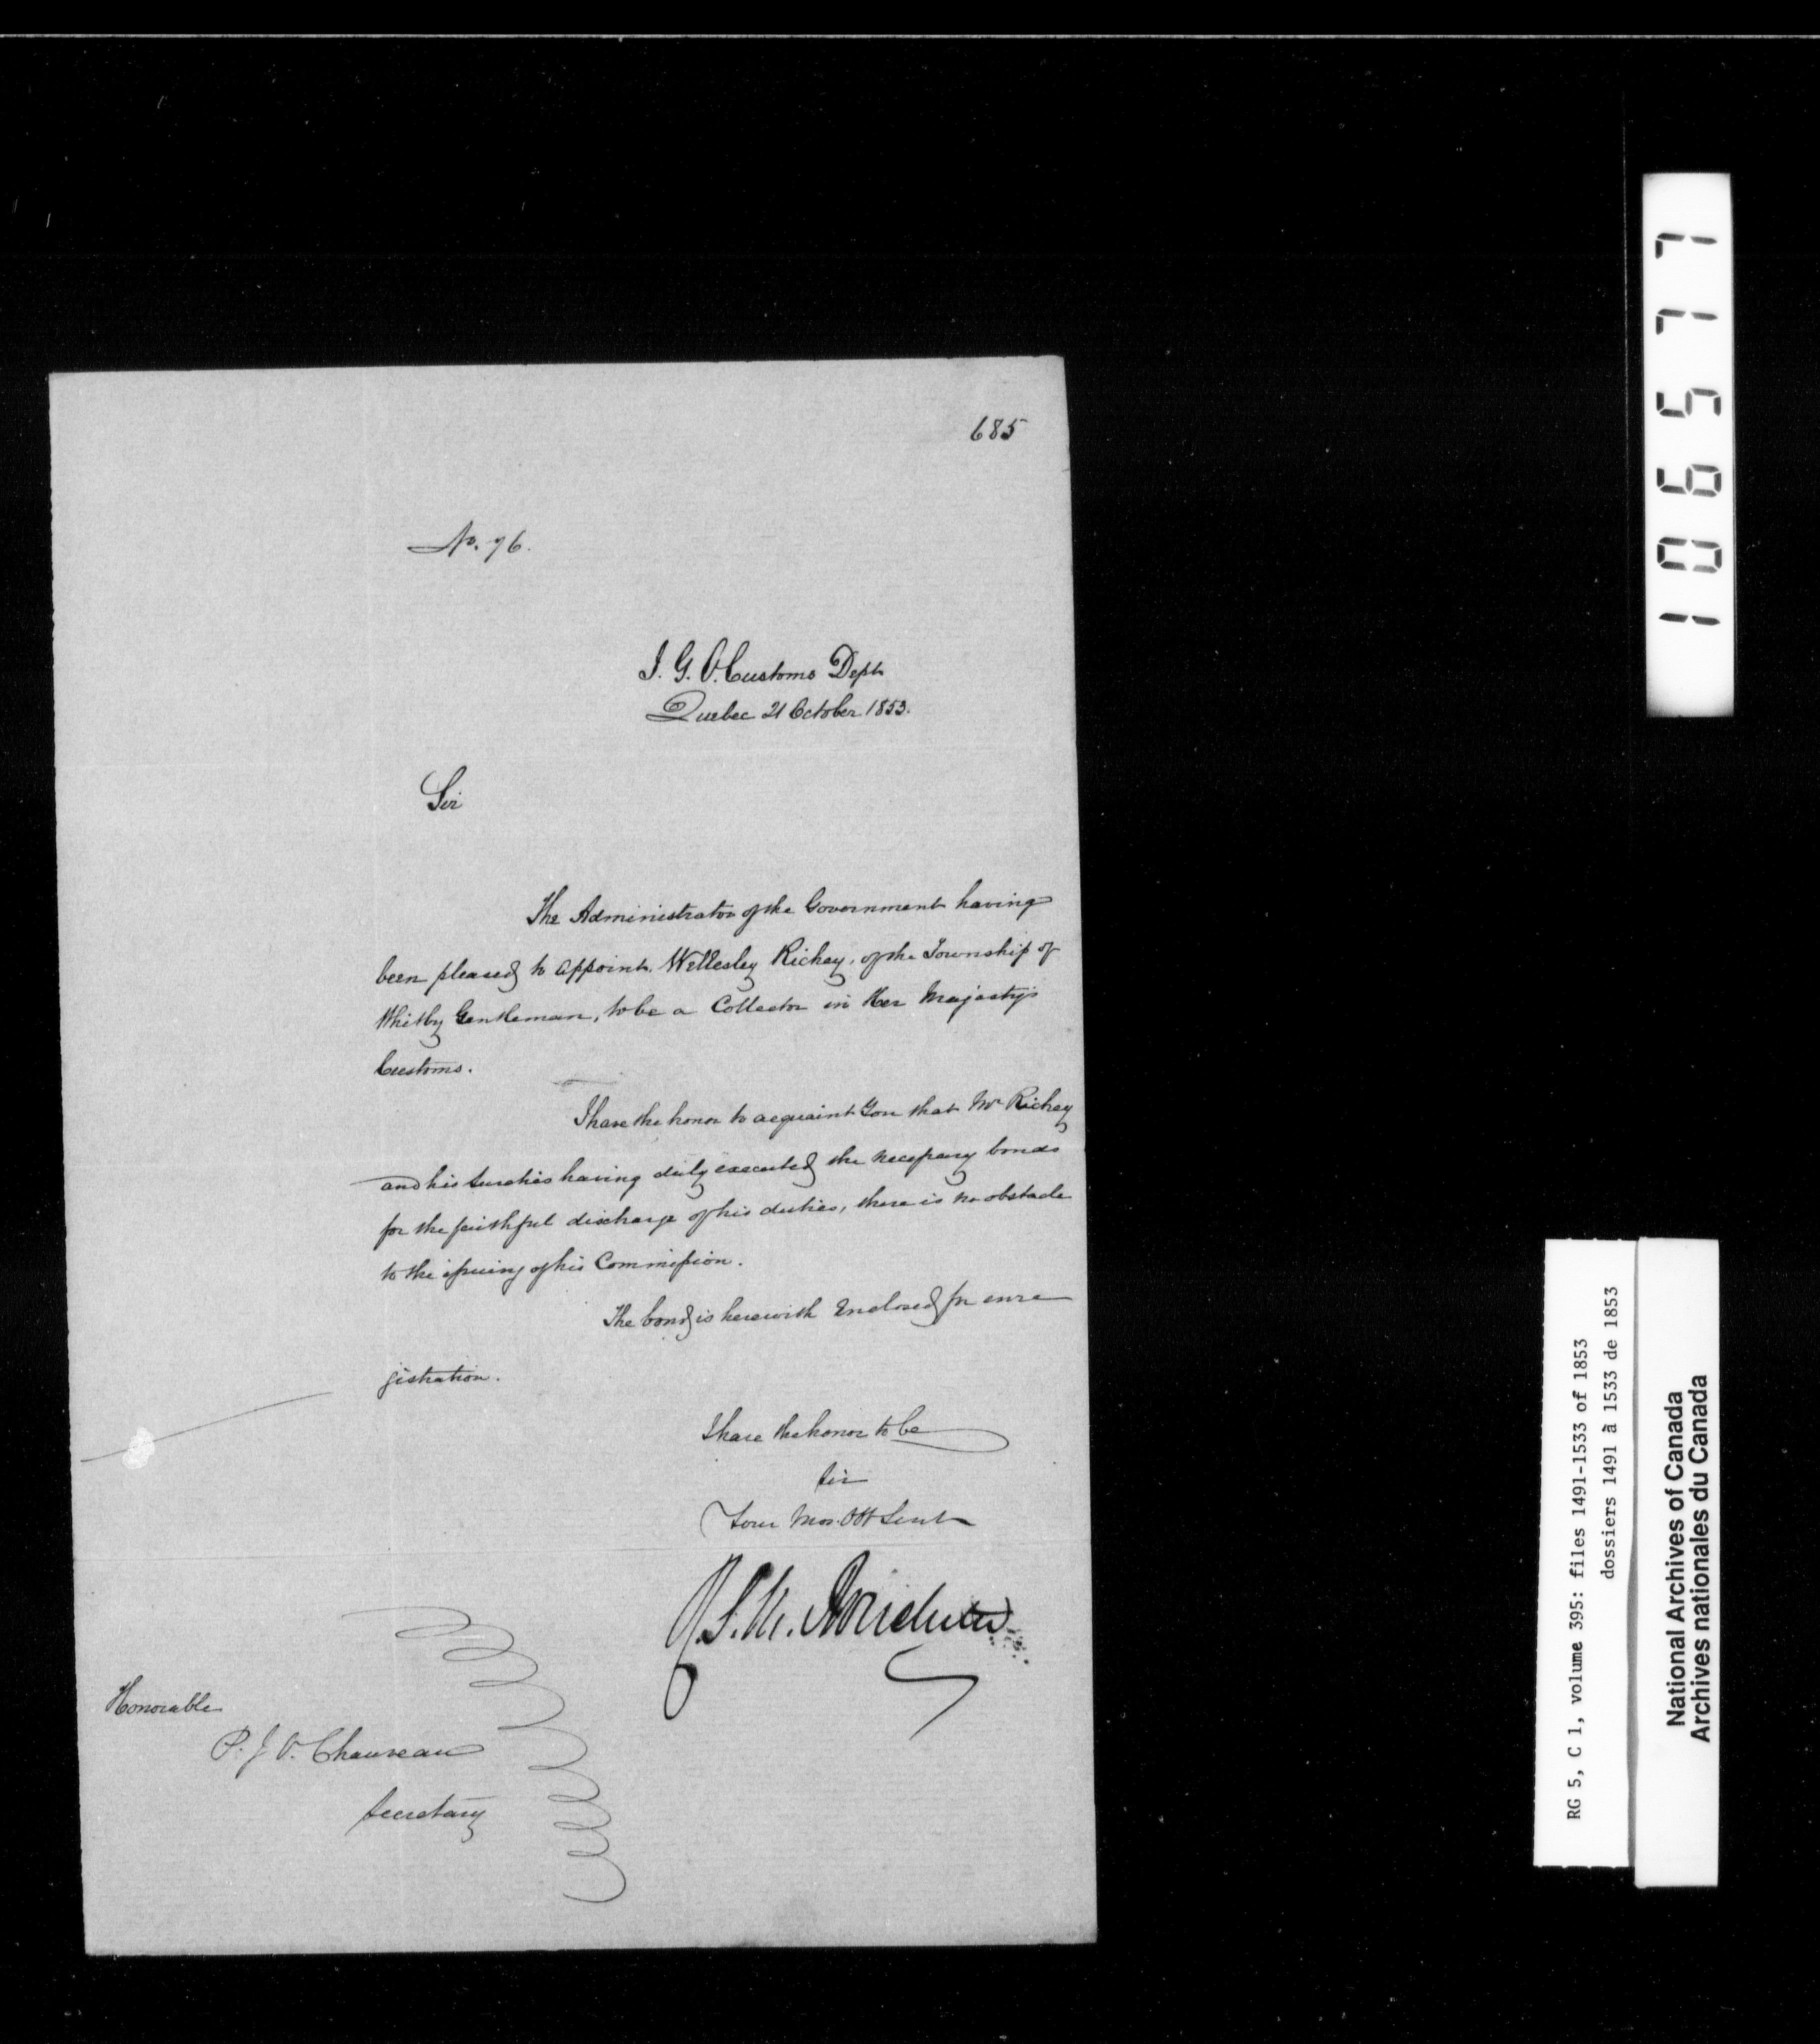 685
No. 76.
I. G. O. Customs Dept
Quebec 21 October 1853.
Sir
The Administrator of the Government having
been pleased to appoint. Wellesley Richey, of the Township of
Whitby Gentleman, to be a Collector in Her Majesty's
Customs.
I have the honor to acquaint You that Mr Richey
and his Sureties having duly executed the necessary bonds
for the faithful discharge of his duties, there is no obstacle
to the issuing of his Commission.
The bond is herewith Enclosed for enre
gistration.
I have the honor to be
Sir
Your Mos. Obt Servt
Honorable
P. J. O. Chauveau
Secretary
106577
RG 5, C 1, volume 395: files 1491-1533 of 1853
dossiers 1491 à 1533 de 1853
National Archives of Canada
Archives nationales du Canada